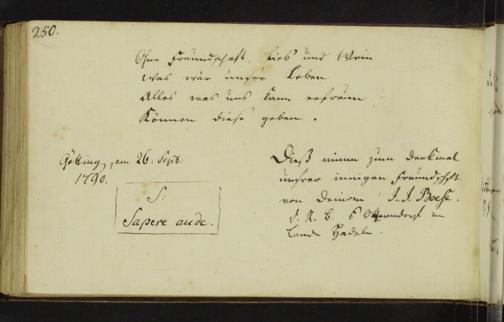 250.
Ohne Freundschaft, Lieb' und Wein
Was wär unser Leben
Alles was uns kann erfreun
Können diese geben.
Götting, am 26: Sept:
1790.
S:
Sapere aude.
Dieß nimm zum Denkmal
unsrer innigen Freundschaft
von Deinem J. J. Boese.
d. R. B. Otterndorf im
Lande Hadeln.